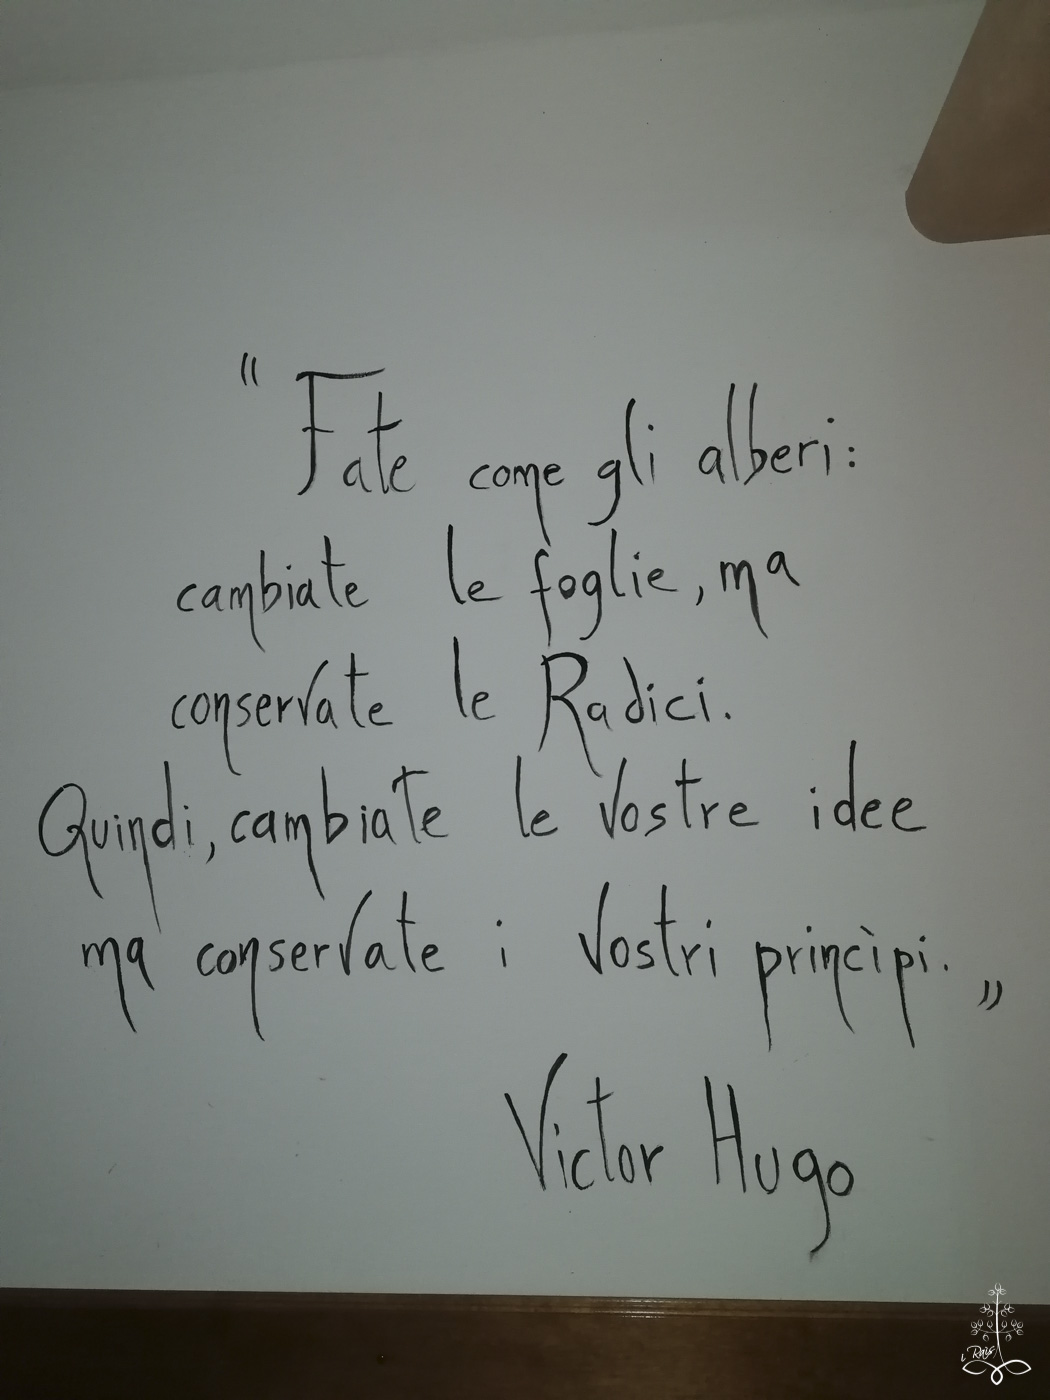 “Fate come gli alberi:
cambiate le foglie, ma
conservate le Radici.
Quindi, cambiate le Vostre idee
ma conservate i Vostri princìpi.”
Victor Hugo